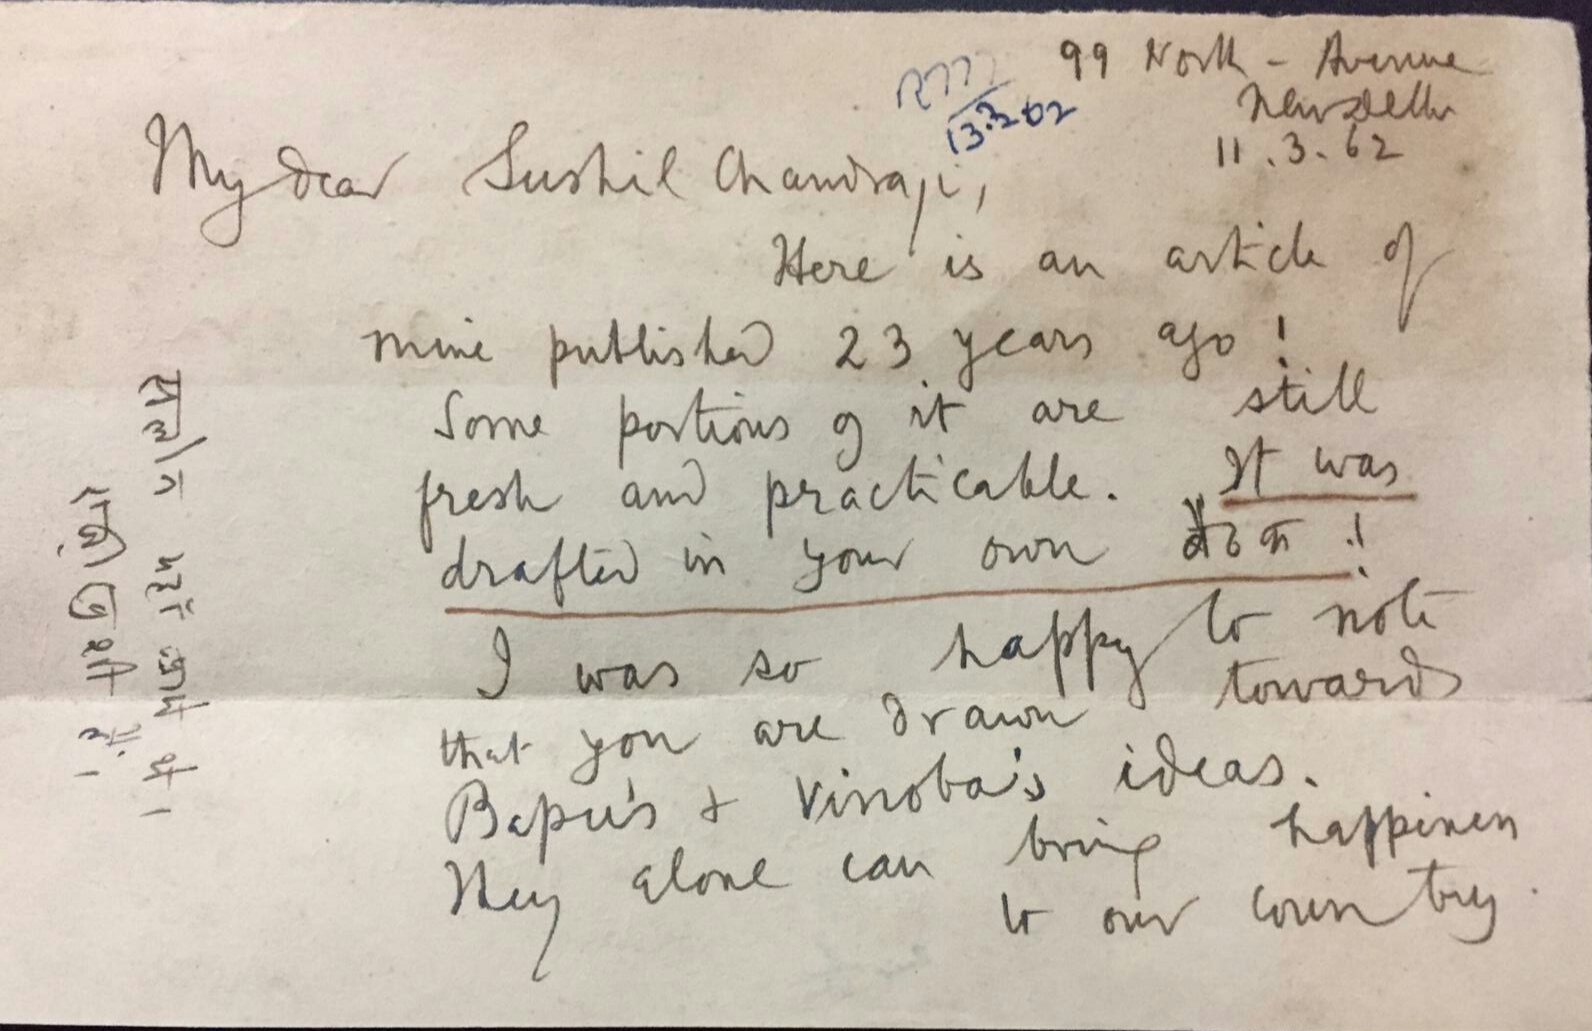 99 North - Avenue
New Delhi
11.3.62
13.3.62
My dear Sushil Chandraji,
Here is an article of
mine published 23 years ago!
Some portions of it are still
fresh and practicable. It was
drafted in your own बैठक !
I was so happy to note
that you are drawn towards
Bapu's & Vinoba's ideas.
They alone can bring happiness
to our country.